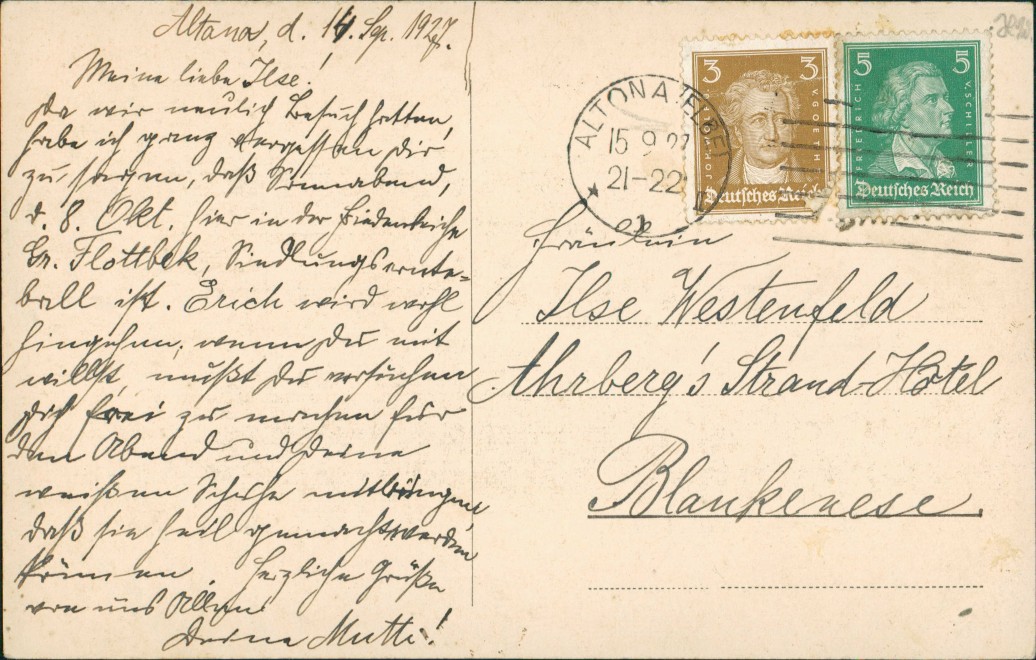 Altona, d. 14. Sep. 1927.
Meine liebe Ilse!
Da wir neulich Besuch hatten,
habe ich ganz vergessen Dir
zu sagen, daß Sonnabend,
d. 8. Okt. hier in der Friedenseiche
Gr. Flottbek, Siedlungsernte-
ball ist. Erich wird wohl
hingehen, wenn Du mit
willst, mußt Du versuchen
Dich frei zu machen für
den Abend und Deine
weißen Schuhe mitbringen
daß sie heil gemacht werden
können. Herzliche Grüße
von uns Allen
Deine Mutti!
ALTONA (ELBE)
15.9.27
21-22
3 3
V. GOETHE
Deutsches Reich
5 5
FRIEDRICH
V. SCHILLER
Deutsches Reich
Fräulein
Ilse Westenfeld
Ahrberg's Strand-Hotel
Blankenese.